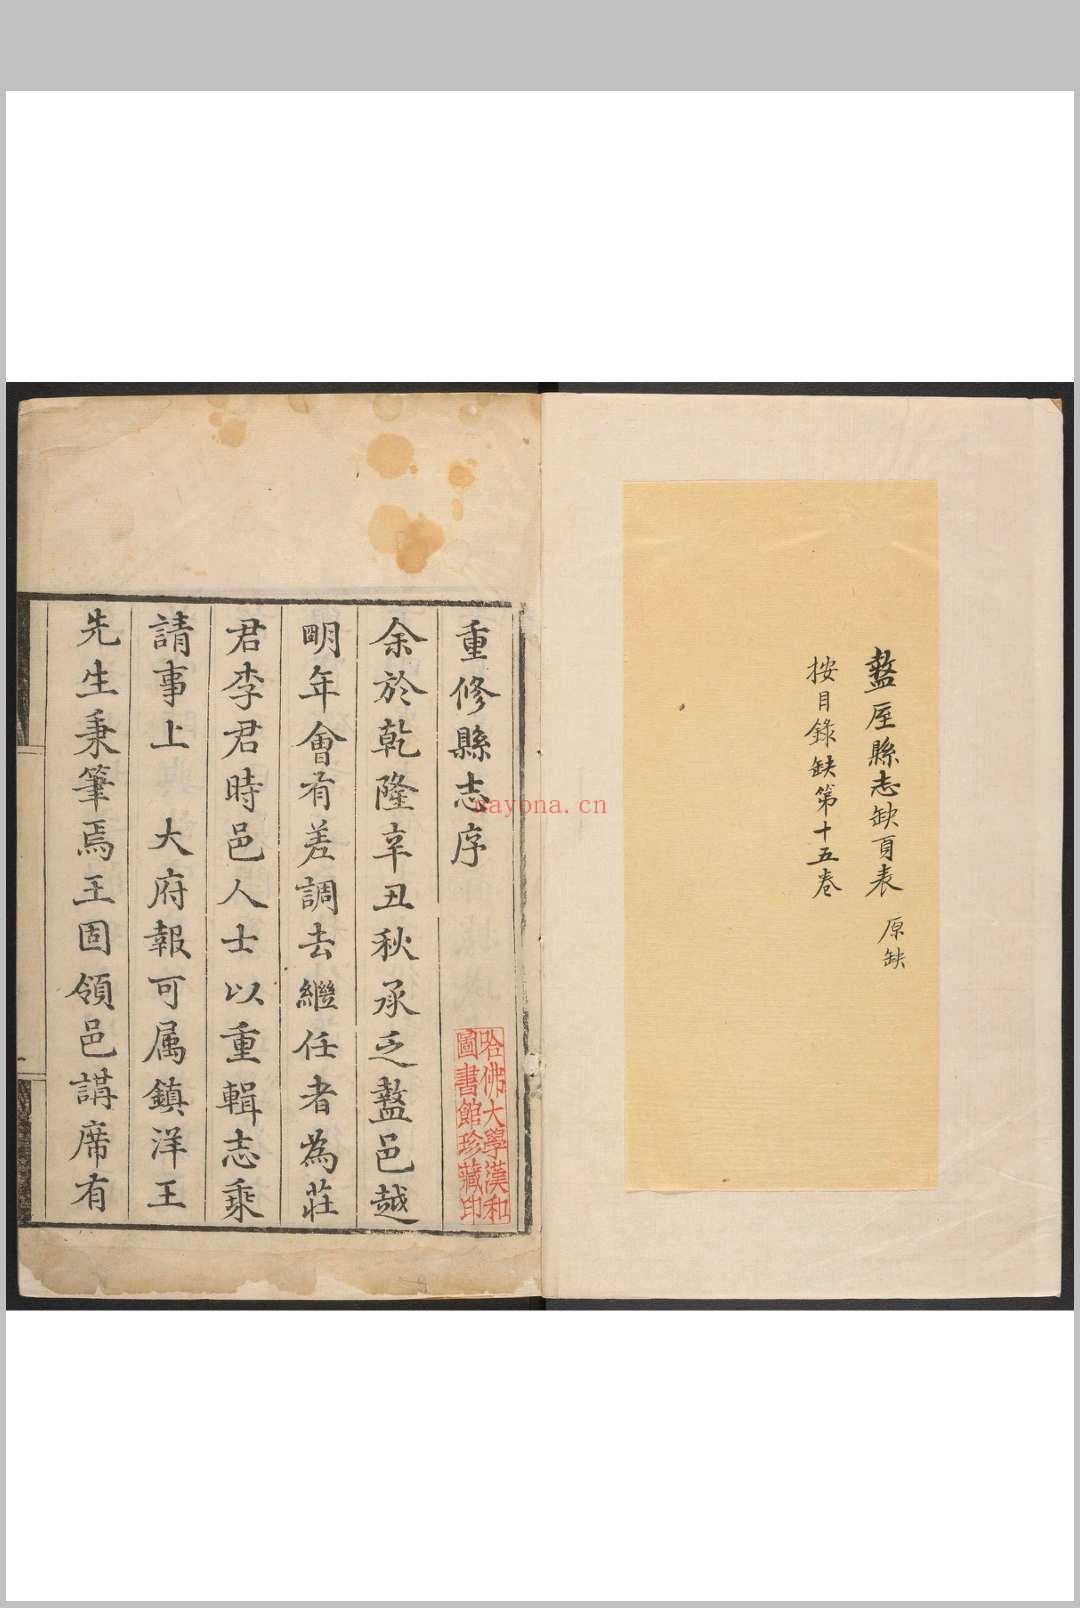 盩厔縣志缺頁表 原缺
按目錄缺第十五卷
重修縣志序
余於乾隆辛丑秋承乏盩邑越
明年會有差調去繼任者為莊
君李君時邑人士以重輯志乘
請事上 大府報可属鎮洋王
先生秉筆焉王固領邑講席有
哈佛大學漢和
圖書館珍藏印
nayona.cn